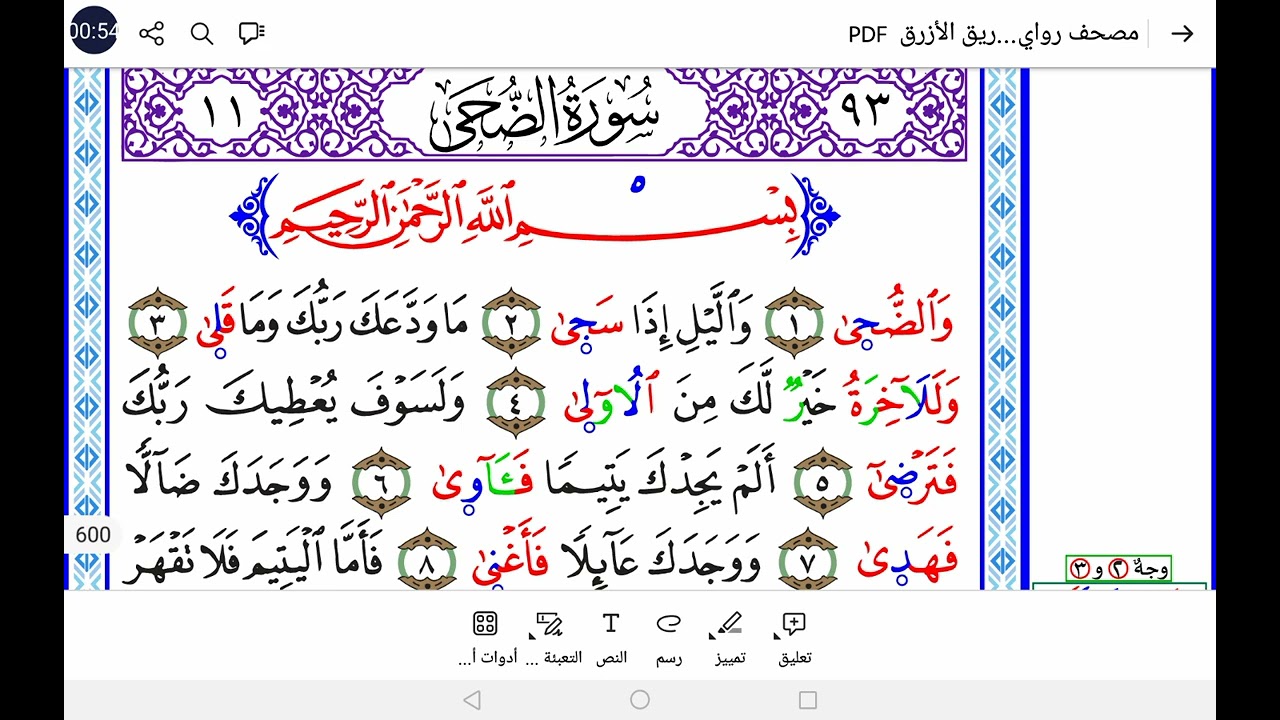 مصحف رواي...ريق الأزرق PDF
00:54
٩٣ سُورَةُ الضُّحَىٰ ١١
بِسْمِ اللَّهِ الرَّحْمَٰنِ الرَّحِيمِ
وَٱلضُّحٜىٰ ١ وَٱلَّيْلِ إِذَا سَجٜىٰ ٢ مَا وَدَّعَكَ رَبُّكَ وَمَا قَلٜىٰ ٣
وَلَلَآخِرَةُ خَيْرٌ لَّكَ مِنَ ٱلُاولٜىٰ ٤ وَلَسَوْفَ يُعْطِيكَ رَبُّكَ
فَتَرْضٜىٰٓ ٥ أَلَمْ يَجِدْكَ يَتِيمًا فَـَٔاوٜىٰ ٦ وَوَجَدَكَ ضَآلًّا
فَهَدٜىٰ ٧ وَوَجَدَكَ عَآئِلًا فَأَغْنٜىٰ ٨ فَأَمَّا ٱلْيَتِيمَ فَلَا تَقْهَرْ
600
وجهٌ ② و ③
تعليق
تمييز
رسم
النص
التعبئة ...
أدوات أ...